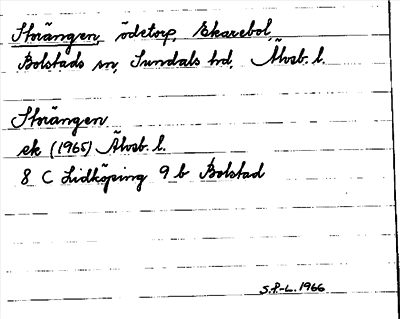 Storängen, ödetorp, Ekarebol,
Bolstads sn, Sundals hd, Älvsb. l.
Storängen
ek (1965) Älvsb. l.
8 C Lidköping 9 b Bolstad
S.P.-L. 1966